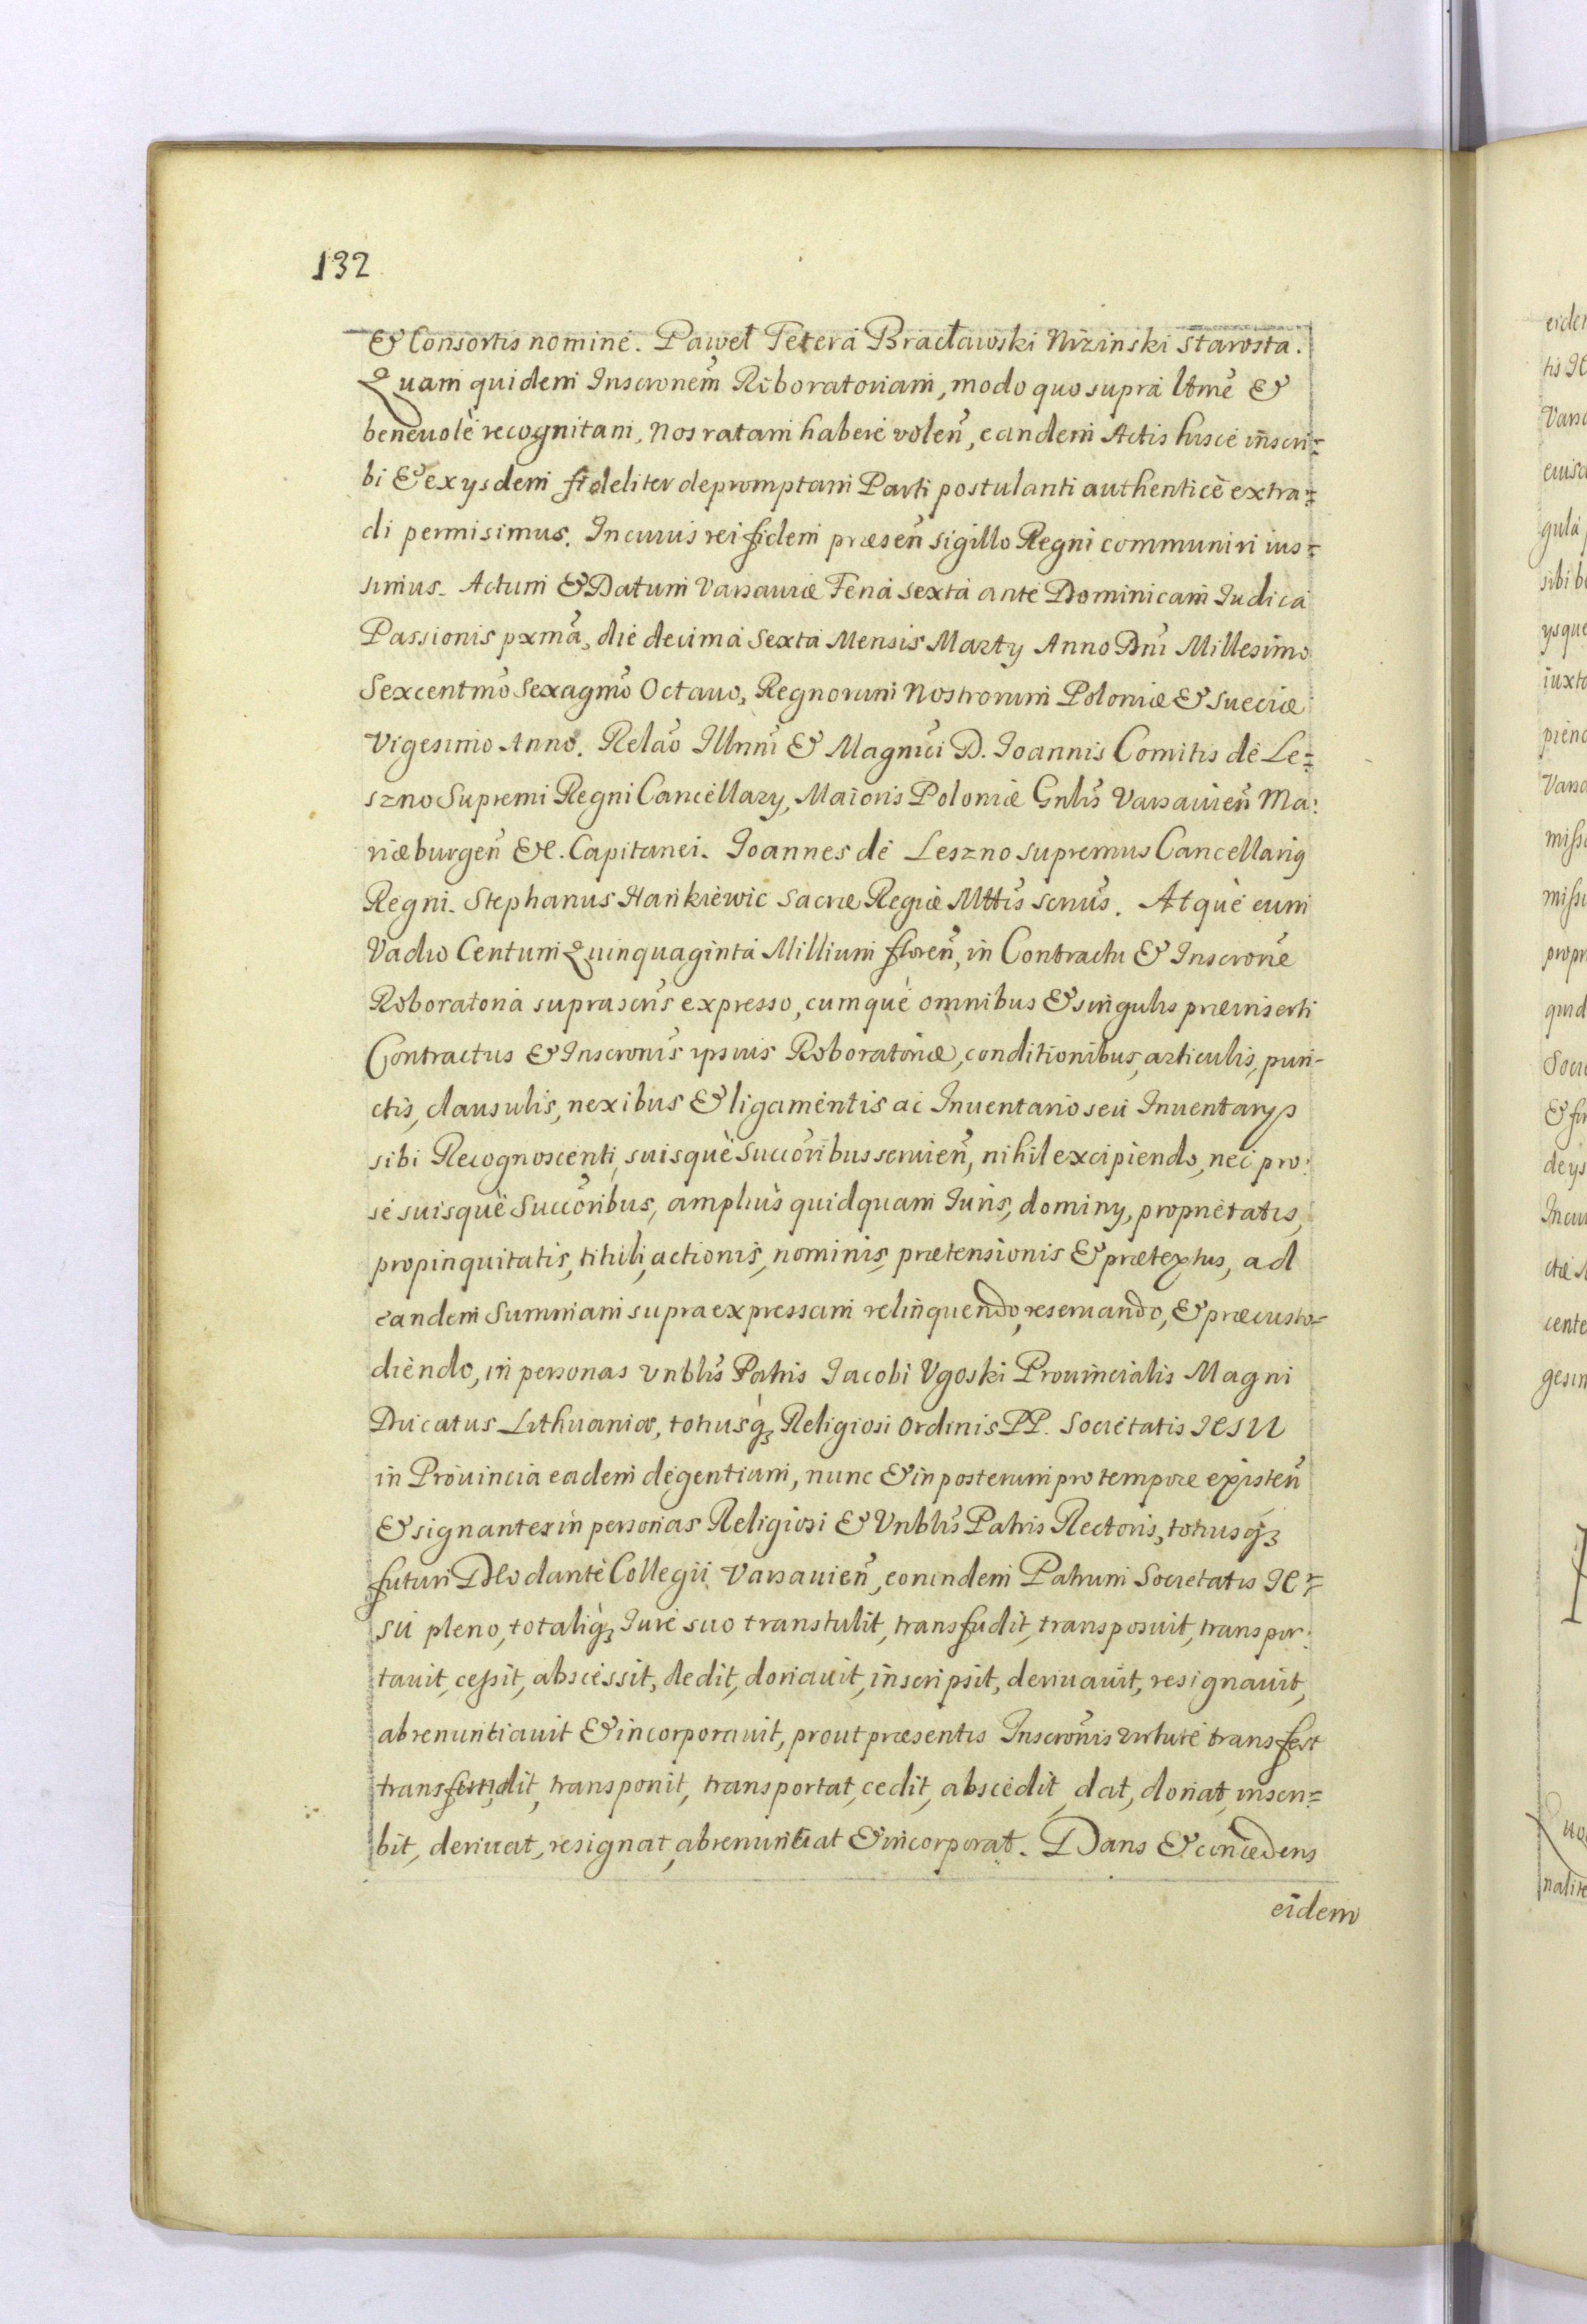 132
& Consortis nomine. Paweł Tetera Bracławski Nizinski starosta.
Quam quidem Inscronem Roboratoriam, modo quo supra ltme &
beneuole recognitam, Nos ratam habere volen, eandem Actis hisce inscri=
bi & ex ysdem fideliter depromptam Parti postulanti authentice extra=
di permisimus. In cuius rei fidem præsen sigillo Regni communiri ius=
simus. Actum & Datum Varsauiæ Feria sexta ante Dominicam Iudica
Passionis pxma, die decima Sexta Mensis Marty Anno Dni Millesimo
Sexcentmo Sexagmo Octauo, Regnorum Nostrorum Poloniæ & Sueciæ
Vigesimo Anno. Relao Illmi & Magnici D. Ioannis Comitis de Le=
szno Supremi Regni Cancellary, Maioris Poloniæ Gnlis Varsauien Ma:
riæburgen &c. Capitanei. Ioannes de Leszno supremus Cancellarig
Regni. Stephanus Hankiewic Sacræ Regiæ Mttis scrius. Atque cum
Vadio Centum Quinquaginta Millium floren, in Contractu & Inscrone
Roboratoria suprascris expresso, cumque omnibus & singulis præinserti
Contractus & Inscronis ipsius Roboratoriæ, conditionibus, articulis, pun-
ctis, clausulis, nexibus & ligamentis ac Inuentario seu Inuentarys
sibi Recognoscenti, suisque Succoribus seruien, nihil excipiendo, nec pro:
se suisque Succoribus, amplius quidquam Iuris, dominy, proprietatis,
propinquitatis, tituli, actionis, nominis, prætensionis & prætextus, ad
eandem Summam supra expressam relinquendo, reseruando, & præcusto=
diendo, in personas Vnblis Patris Iacobi Vgoski Prouincialis Magni
Ducatus Lithuaniæ, totiusq3 Religiosi Ordinis PP. Societatis IESU
in Prouincia eadem degentium, nunc & in posterum pro tempore existen
& signanter in personas Religiosi & Vnblis Patris Rectoris, totiusq3
futuri Deo dante Collegii Varsauien, eorundem Patrum Societatis IE=
SU pleno, totaliq3 Iure suo transtulit, transfudit, transposuit, transpor:
tauit, cessit, abscessit, dedit, donauit, inscripsit, deriuauit, resignauit,
abrenuntiauit & incorporauit, prout præsentis Inscronis virtute transfert
transfundit, transponit, transportat, cedit, abscedit, dat, donat, inscri=
bit, deriuat, resignat, abrenuntiat & incorporat. Dans & concedens
eidem